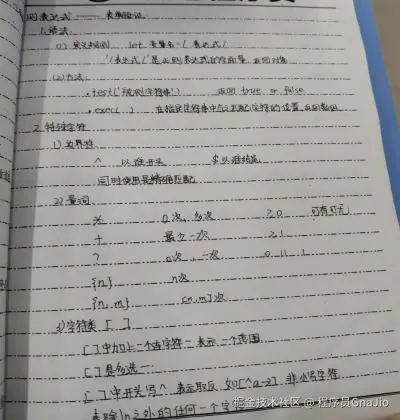 则表达式 —— 表单验证
1. 语法
(1) 定义规则 let 变量名 = / 表达式 /
'/表达式/' 是正则表达式的字面量, 返回对象
(2) 方法
.test('被测字符串') 返回 true or false
.exec( ) 在指定字符串中 匹配字符的位置, 返回数组
2. 特殊字符
1) 边界符
^ 以谁开头 $ 以谁结尾
同时使用是精确匹配
2) 量词
* 0次, 多次 ≥0 可有可无
+ 最少一次 ≥1
? 0次, 一次 0 || 1
{n} n次
{n, m} [n, m] 次
3) 字符类 [ ]
[ ] 中加上一个连字符 - 表示一个范围
[ ] 里多选一
[ ] 中开头写 ^ 表示取反 如 [^a-z] 非小写字符
除 \n 之外的任何一个字符
掘金技术社区 @ 程序员GnaJio